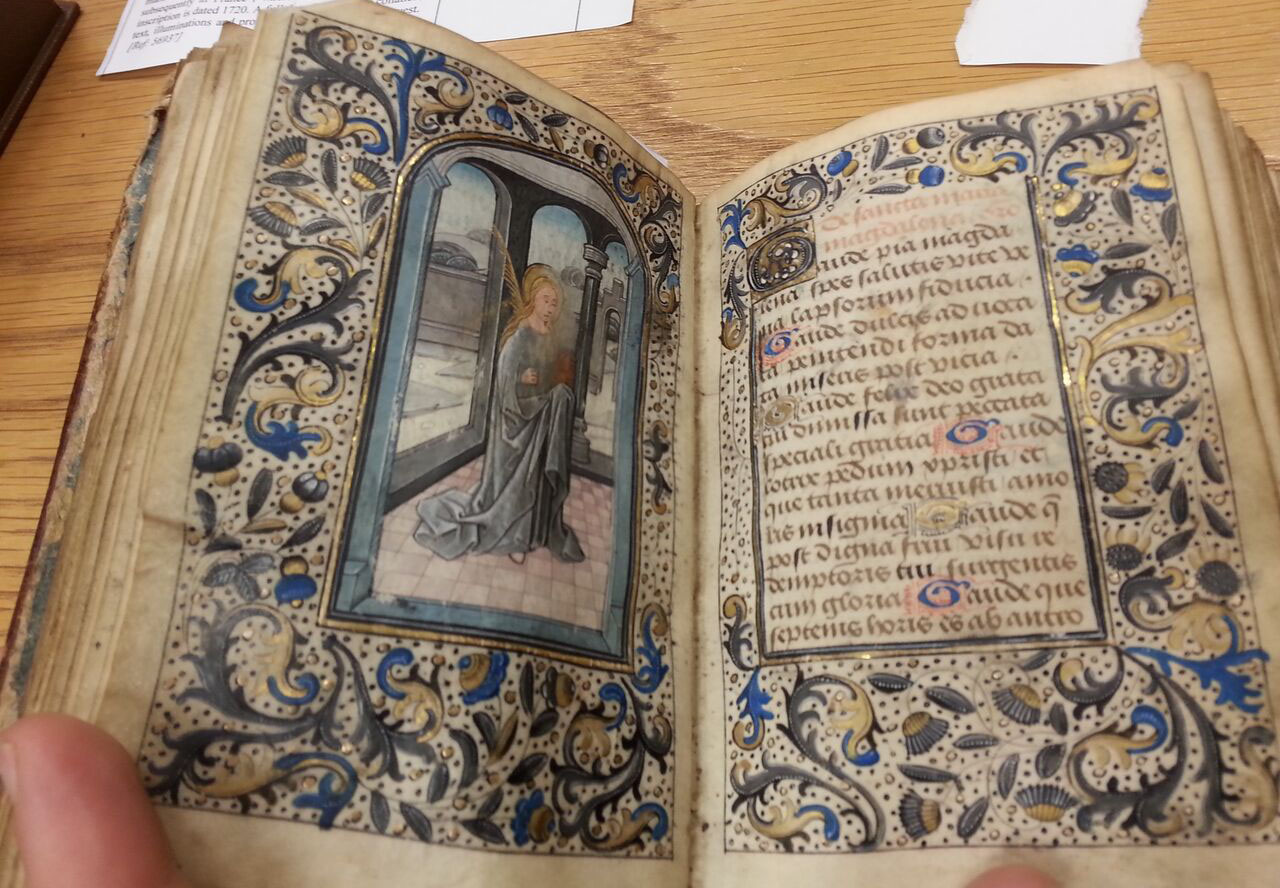 subsequently in France
inscription is dated 1720.
text, illuminations and
[Ref: 56937]
De sancta maria
magdalena
Gaude pia magda
lena spes salutis vite
na lapsorum fiducia
Gaude dulcis advoca
ta penitendi forma da
ta miseris post vicia
Gaude felix deo grata
cui dimissa sunt peccata
speciali gratia Gaude
lotrix pedum xpristi et
que tanta meruisti amo
ris insignia Gaude q̃
post digna frui visu re
demptoris tui surgentis
cum gloria Gaude que
septenis horis es ab antro